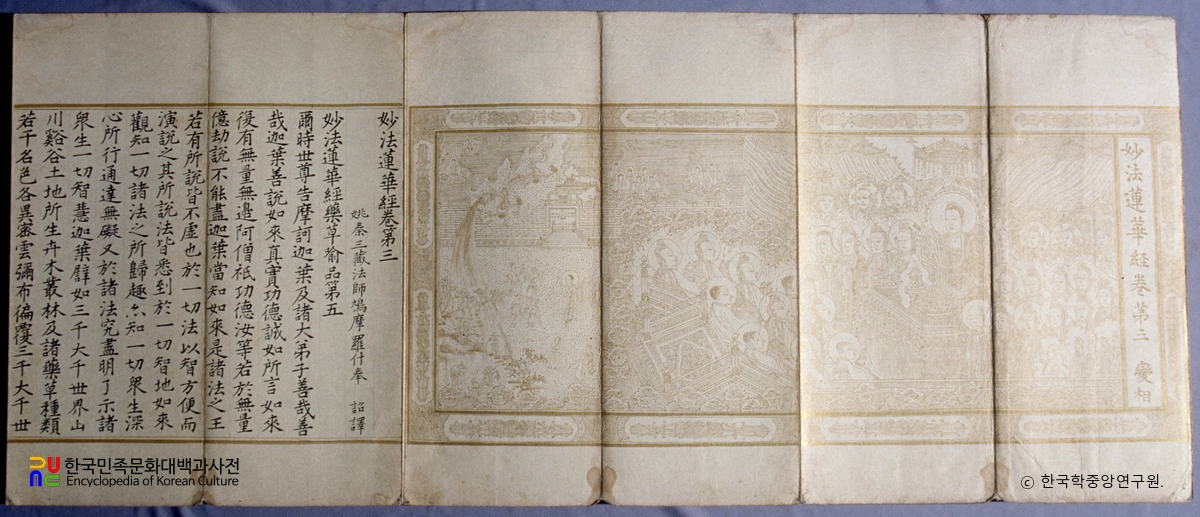 妙法蓮華經卷第三 變相
妙法蓮華經卷第三
姚秦三藏法師鳩摩羅什奉 詔譯
妙法蓮華經藥草喻品第五
爾時世尊告摩訶迦葉及諸大弟子善哉善
哉迦葉善說如來真實功德誠如所言如來
復有無量無邊阿僧祇功德汝等若於無量
億劫說不能盡迦葉當知如來是諸法之王
若有所說皆不虛也於一切法以智方便而
演說之其所說法皆悉到於一切智地如來
觀知一切諸法之所歸趣亦知一切衆生深
心所行通達無礙又於諸法究盡明了示諸
衆生一切智慧迦葉譬如三千大千世界山
川谿谷土地所生卉木叢林及諸藥草種類
若干名色各異密雲彌布徧覆三千大千世
한국민족문화대백과사전
Encyclopedia of Korean Culture
ⓒ 한국학중앙연구원.